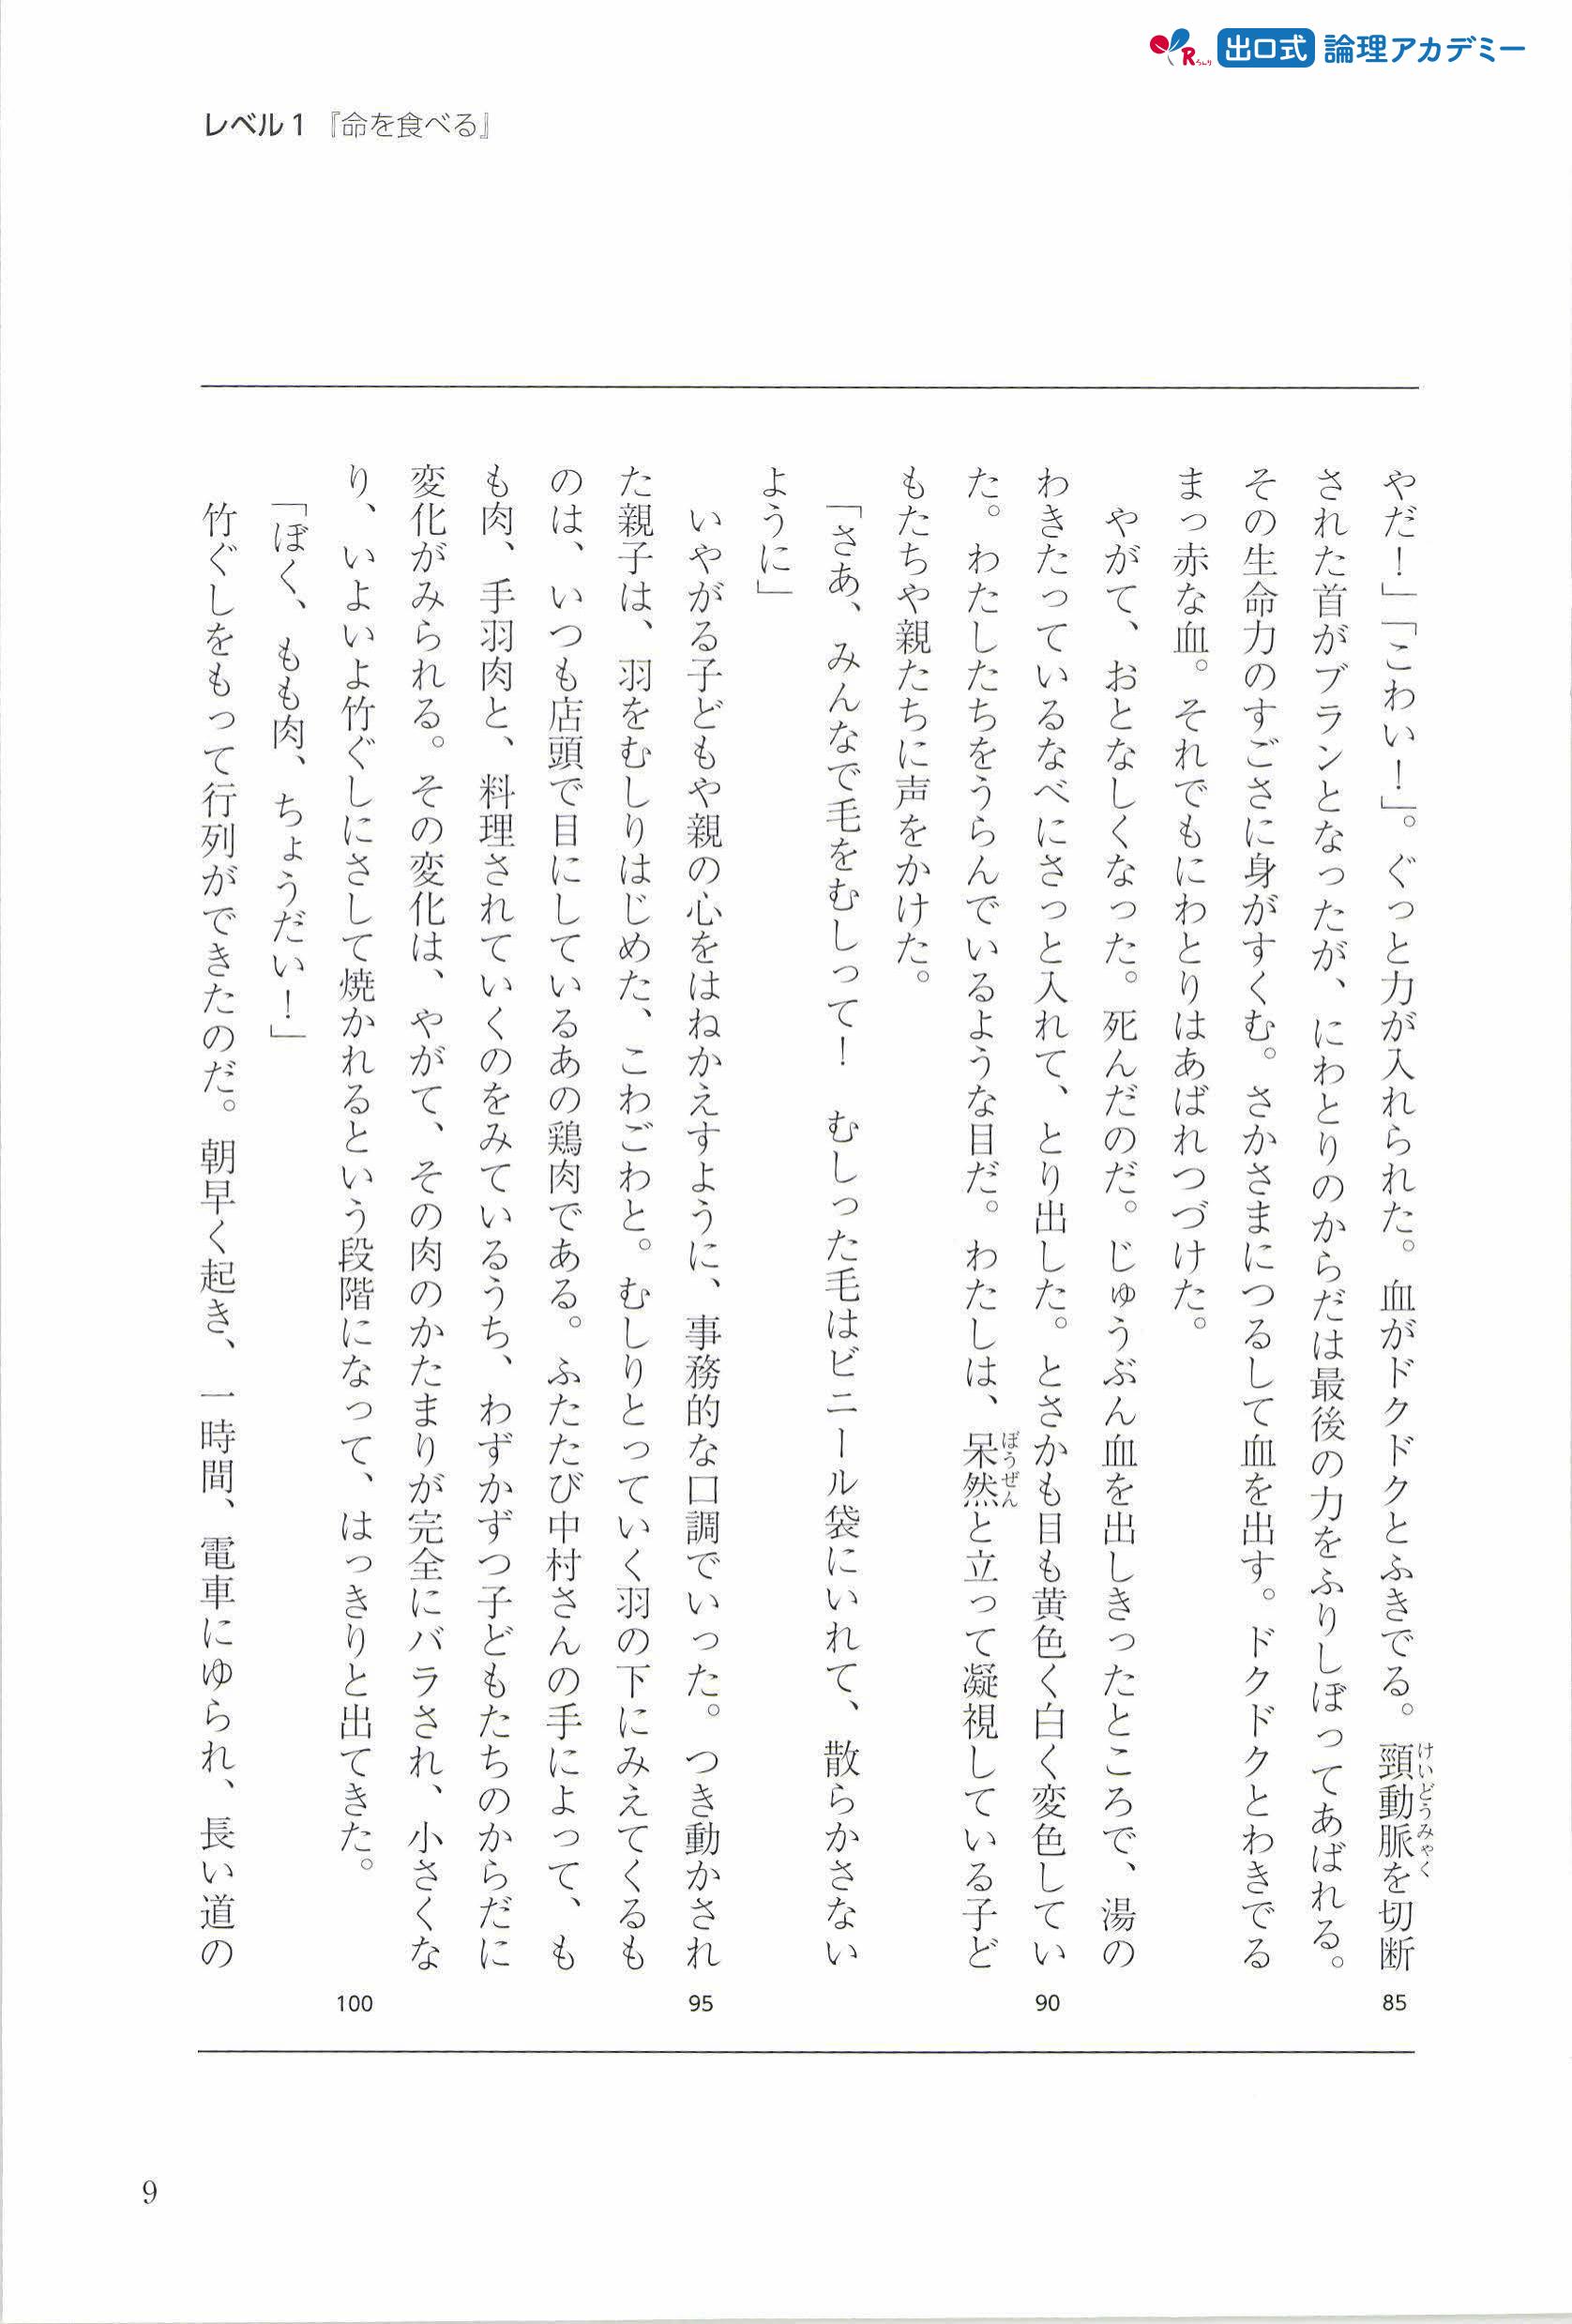 Rろんり 出口式 論理アカデミー
レベル1『命を食べる』
やだ！」「こわい！」。ぐっと力が入れられた。血がドクドクとふきでる。頸動脈を切断
けいどうみゃく
された首がブランとなったが、にわとりのからだは最後の力をふりしぼってあばれる。
その生命力のすごさに身がすくむ。さかさまにつるして血を出す。ドクドクとわきでる
まっ赤な血。それでもにわとりはあばれつづけた。
やがて、おとなしくなった。死んだのだ。じゅうぶん血を出しきったところで、湯の
わきたっているなべにさっと入れて、とり出した。とさかも目も黄色く白く変色してい
た。わたしたちをうらんでいるような目だ。わたしは、呆然と立って凝視している子ど
ぼうぜん
もたちや親たちに声をかけた。
「さあ、みんなで毛をむしって！　むしった毛はビニール袋にいれて、散らかさない
ように」
いやがる子どもや親の心をはねかえすように、事務的な口調でいった。つき動かされ
た親子は、羽をむしりはじめた、こわごわと。むしりとっていく羽の下にみえてくるも
のは、いつも店頭で目にしているあの鶏肉である。ふたたび中村さんの手によって、も
も肉、手羽肉と、料理されていくのをみているうち、わずかずつ子どもたちのからだに
変化がみられる。その変化は、やがて、その肉のかたまりが完全にバラされ、小さくな
り、いよいよ竹ぐしにさして焼かれるという段階になって、はっきりと出てきた。
「ぼく、もも肉、ちょうだい！」
竹ぐしをもって行列ができたのだ。朝早く起き、一時間、電車にゆられ、長い道の
85
90
95
100
9